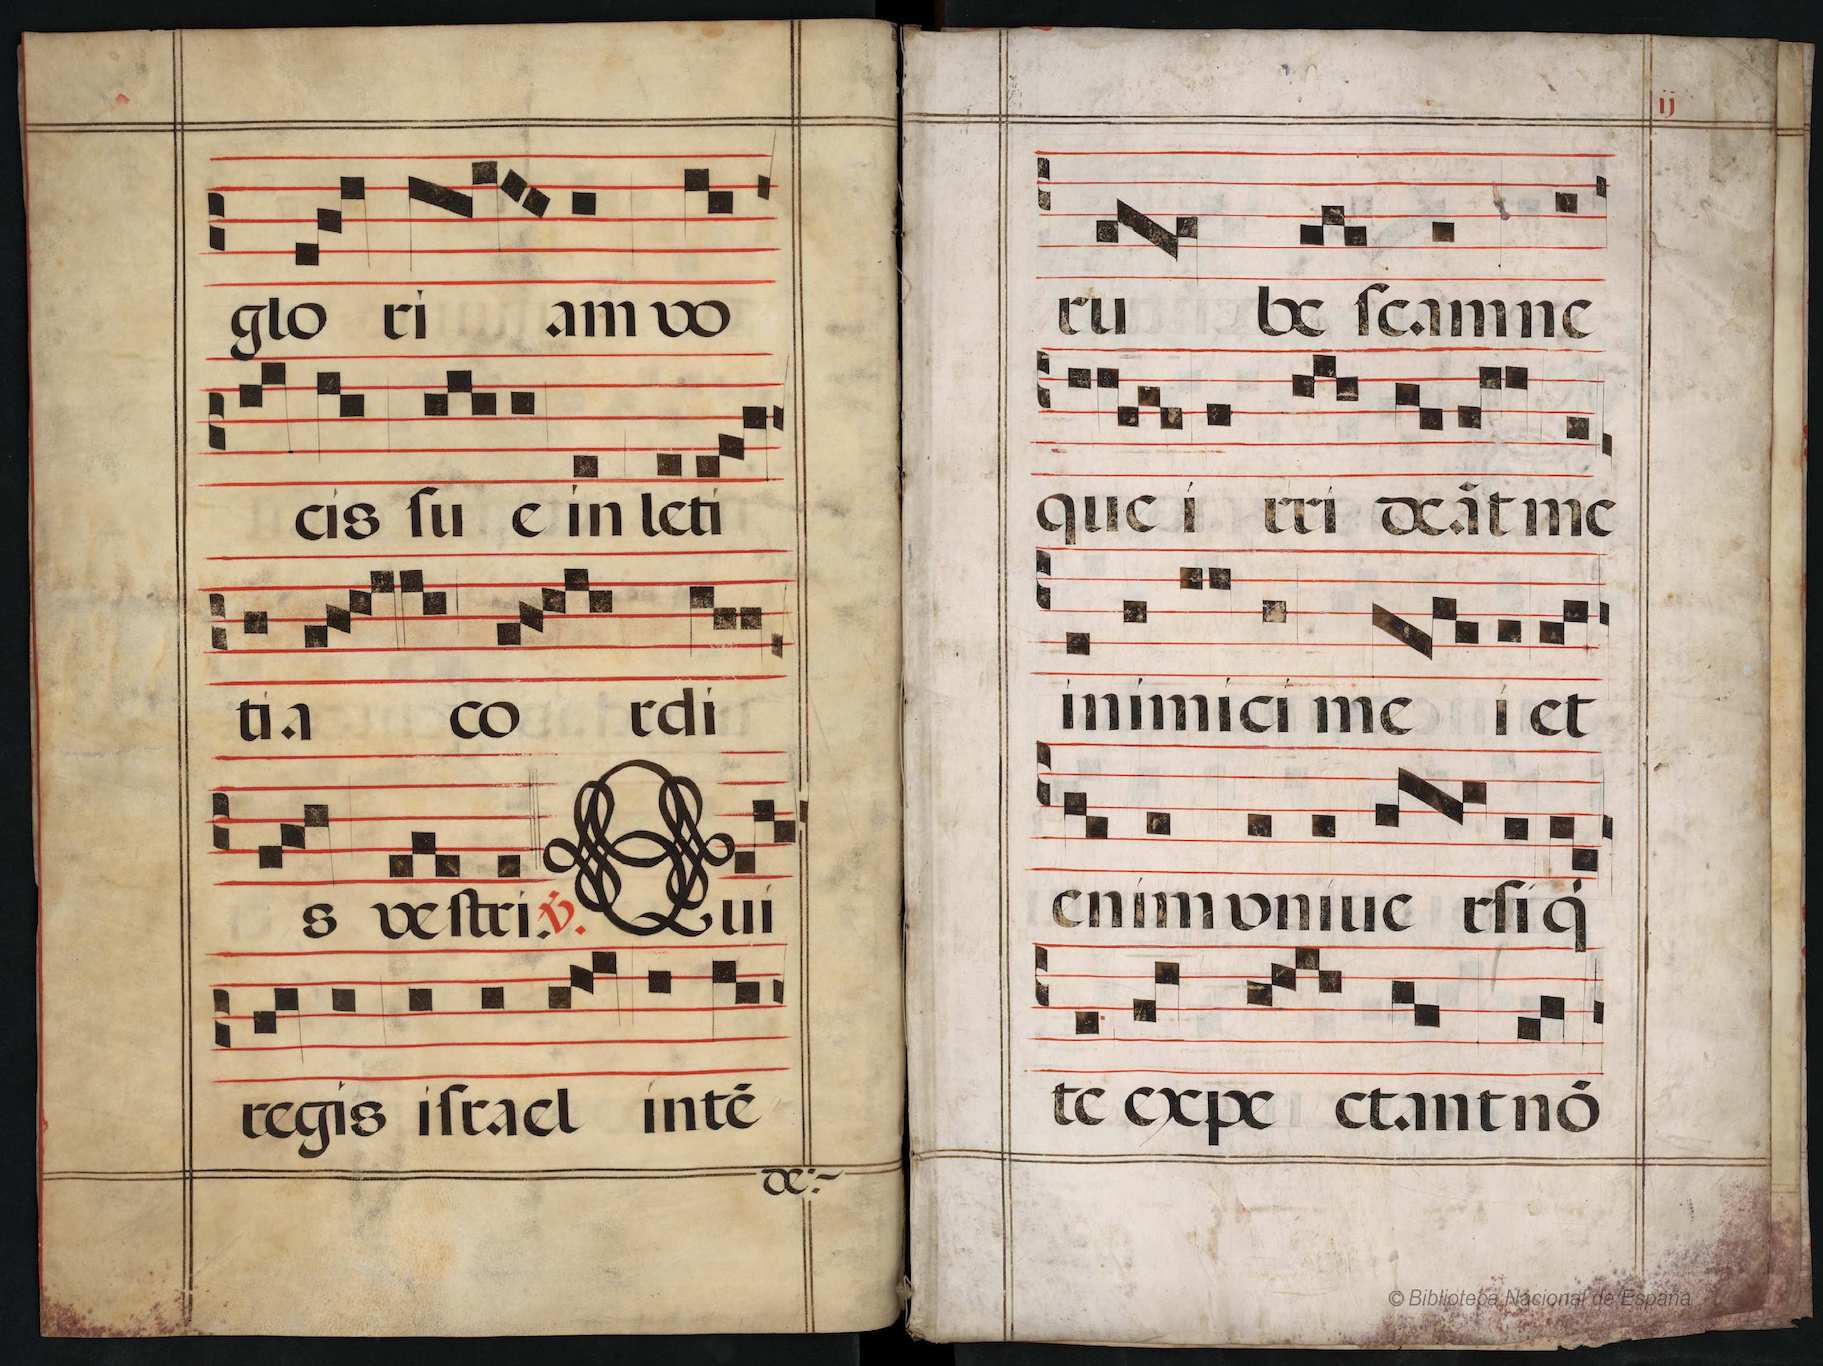 glo ri am vo
cis su e in leti
tia co rdi
s vestri. ℣. Qui
regis israel intē
de:~
ij
ru be scam ne
que i rri deāt me
inimici me i et
enim vniue rsi q̇
te expe ctant nō
© Biblioteca Nacional de España